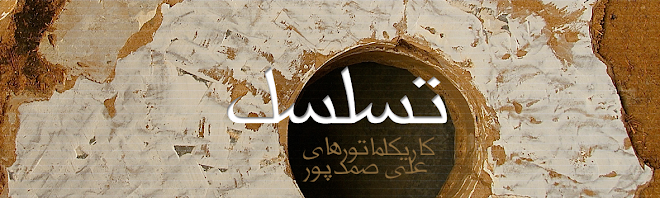 تسلسل
کاریکلماتورهای
علی صمدپور